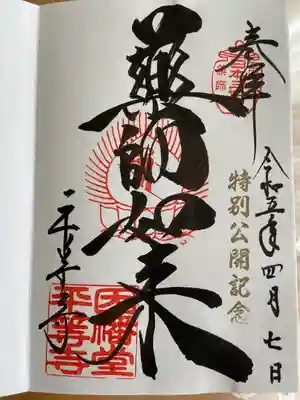 奉拝
令和五年四月七日
特別公開記念
藥師如来
平等寺
因幡堂
平等寺